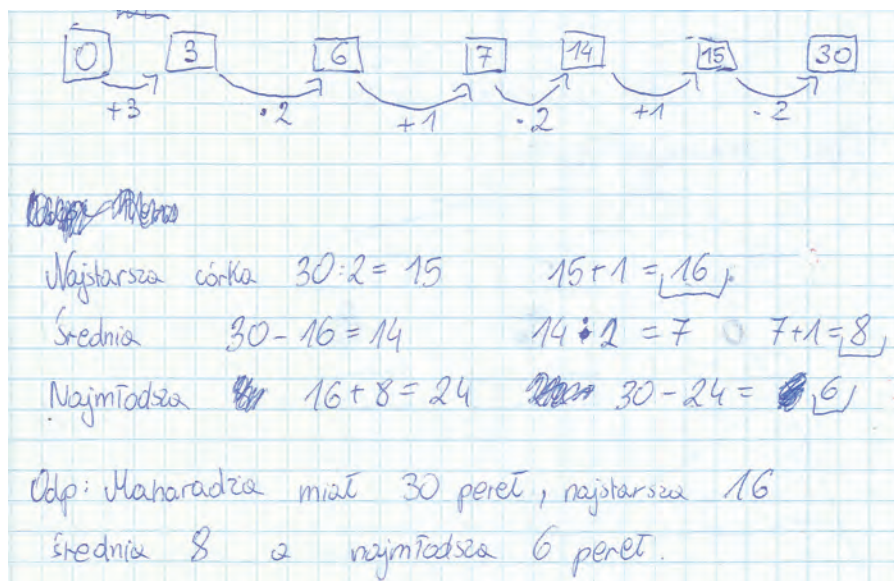 0 3 6 7 14 15 30
+3 ·2 +1 ·2 +1 ·2
Najstarsza córka 30:2 = 15 15+1 = 16.
Średnia 30-16 = 14 14:2 = 7 7+1 = 8
Najmłodsza 16+8 = 24 30-24 = 6
Odp: Maharadża miał 30 pereł, najstarsza 16
średnia 8 a najmłodsza 6 pereł.